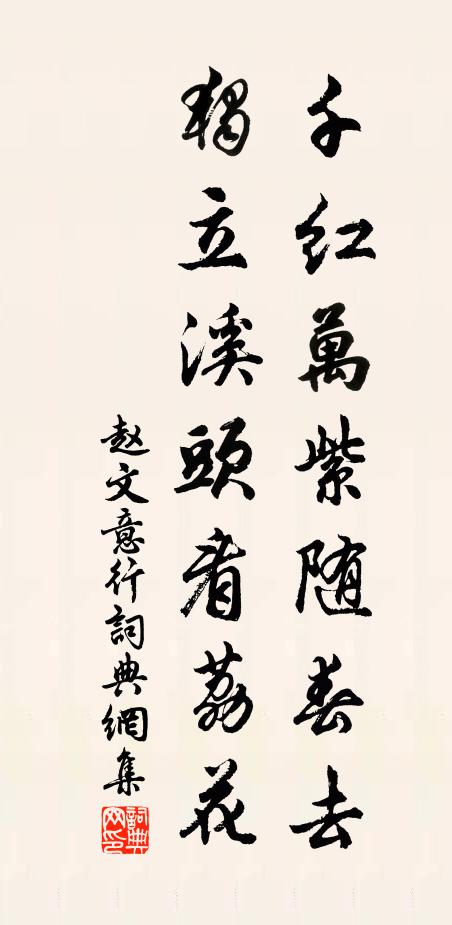 千紅萬紫随春去
獨立溪頭看荔花
赵文意行詞典網集
詞典网印